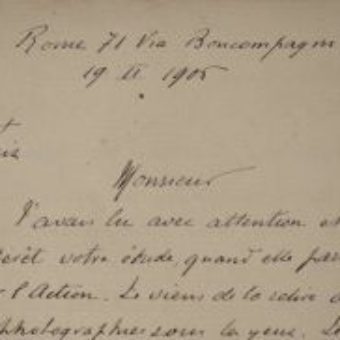 Rome 71 Via Boncompagni
19 II 1905
Monsieur
J'avais lu avec attention et
votre étude, quand elle par
l'Action. Je viens de la relire
photographies sous les yeux. Le